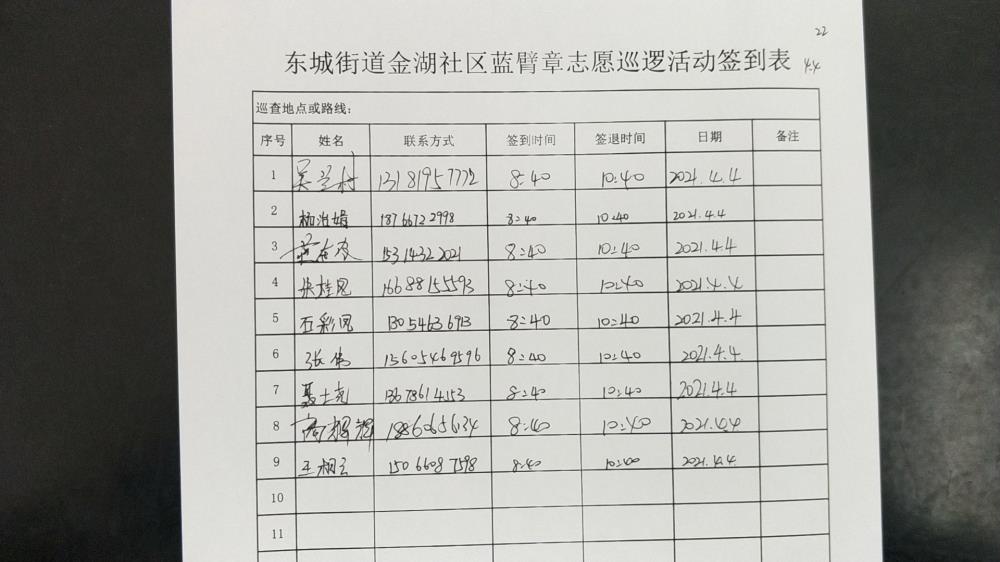 22
东城街道金湖社区蓝臂章志愿巡逻活动签到表 4.4
巡查地点或路线:
序号 姓名 联系方式 签到时间 签退时间 日期 备注
1 13181957772 8:40 10:40 2021.4.4
2 18766722998 8:40 10:40 2021.4.4
3 15314322021 8:40 10:40 2021.4.4
4 张桂恩 16688155593 8:40 10:40 2021.4.4
5 石彩凤 13054636913 8:40 10:40 2021.4.4
6 张伟 15605469596 8:40 10:40 2021.4.4.
7 聂士克 13678614153 8:40 10:40 2021.4.4
8 8:40 10:40 2021.4.4
9 王相云 15066087598 8:40 2021.4.4.
10
11